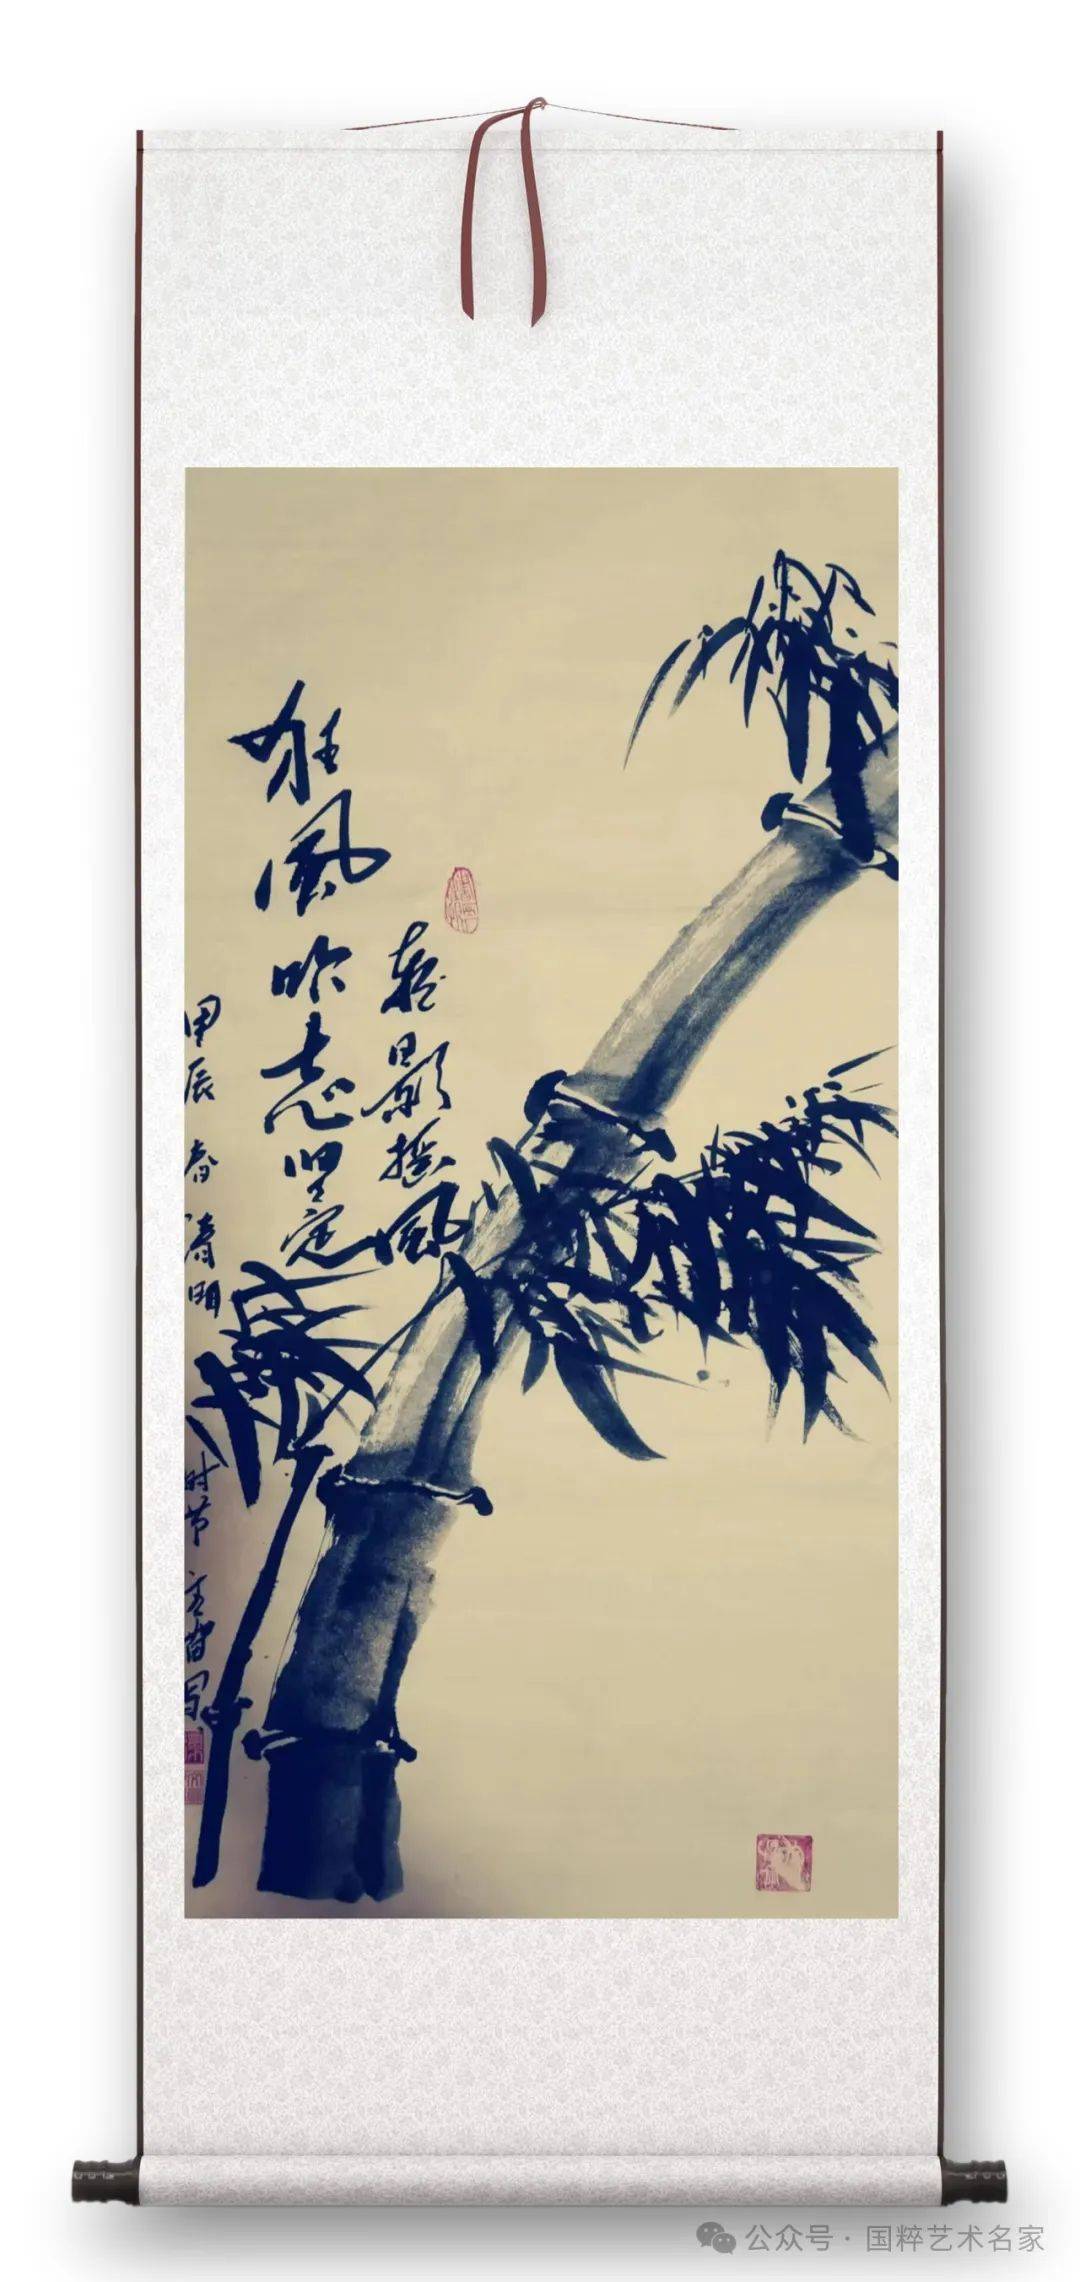 轻影摇风
狂风吹志坚定
甲辰春清明时节
写
公众号 · 国粹艺术名家